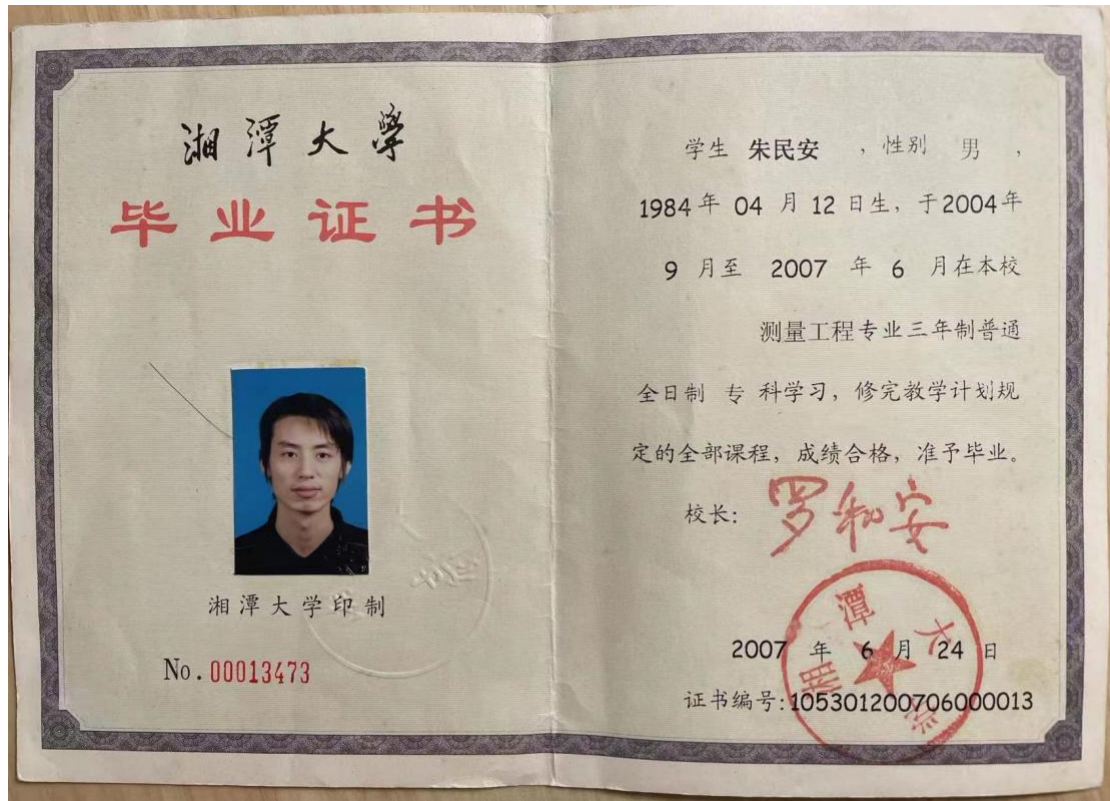 湘潭大學
毕业证书
湘潭大学印制
No.00013473
学生 朱民安 ,性别 男 ,
1984年 04 月 12 日生, 于2004年
9 月至 2007 年 6 月在本校
测量工程专业三年制普通
全日制 专 科学习, 修完教学计划规
定的全部课程, 成绩合格, 准予毕业。
校长: 罗和安
湘潭大学
2007 年 6 月 24 日
证书编号:105301200706000013